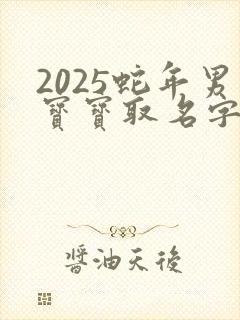 2025蛇年男
寶寶取名字
醬油天後